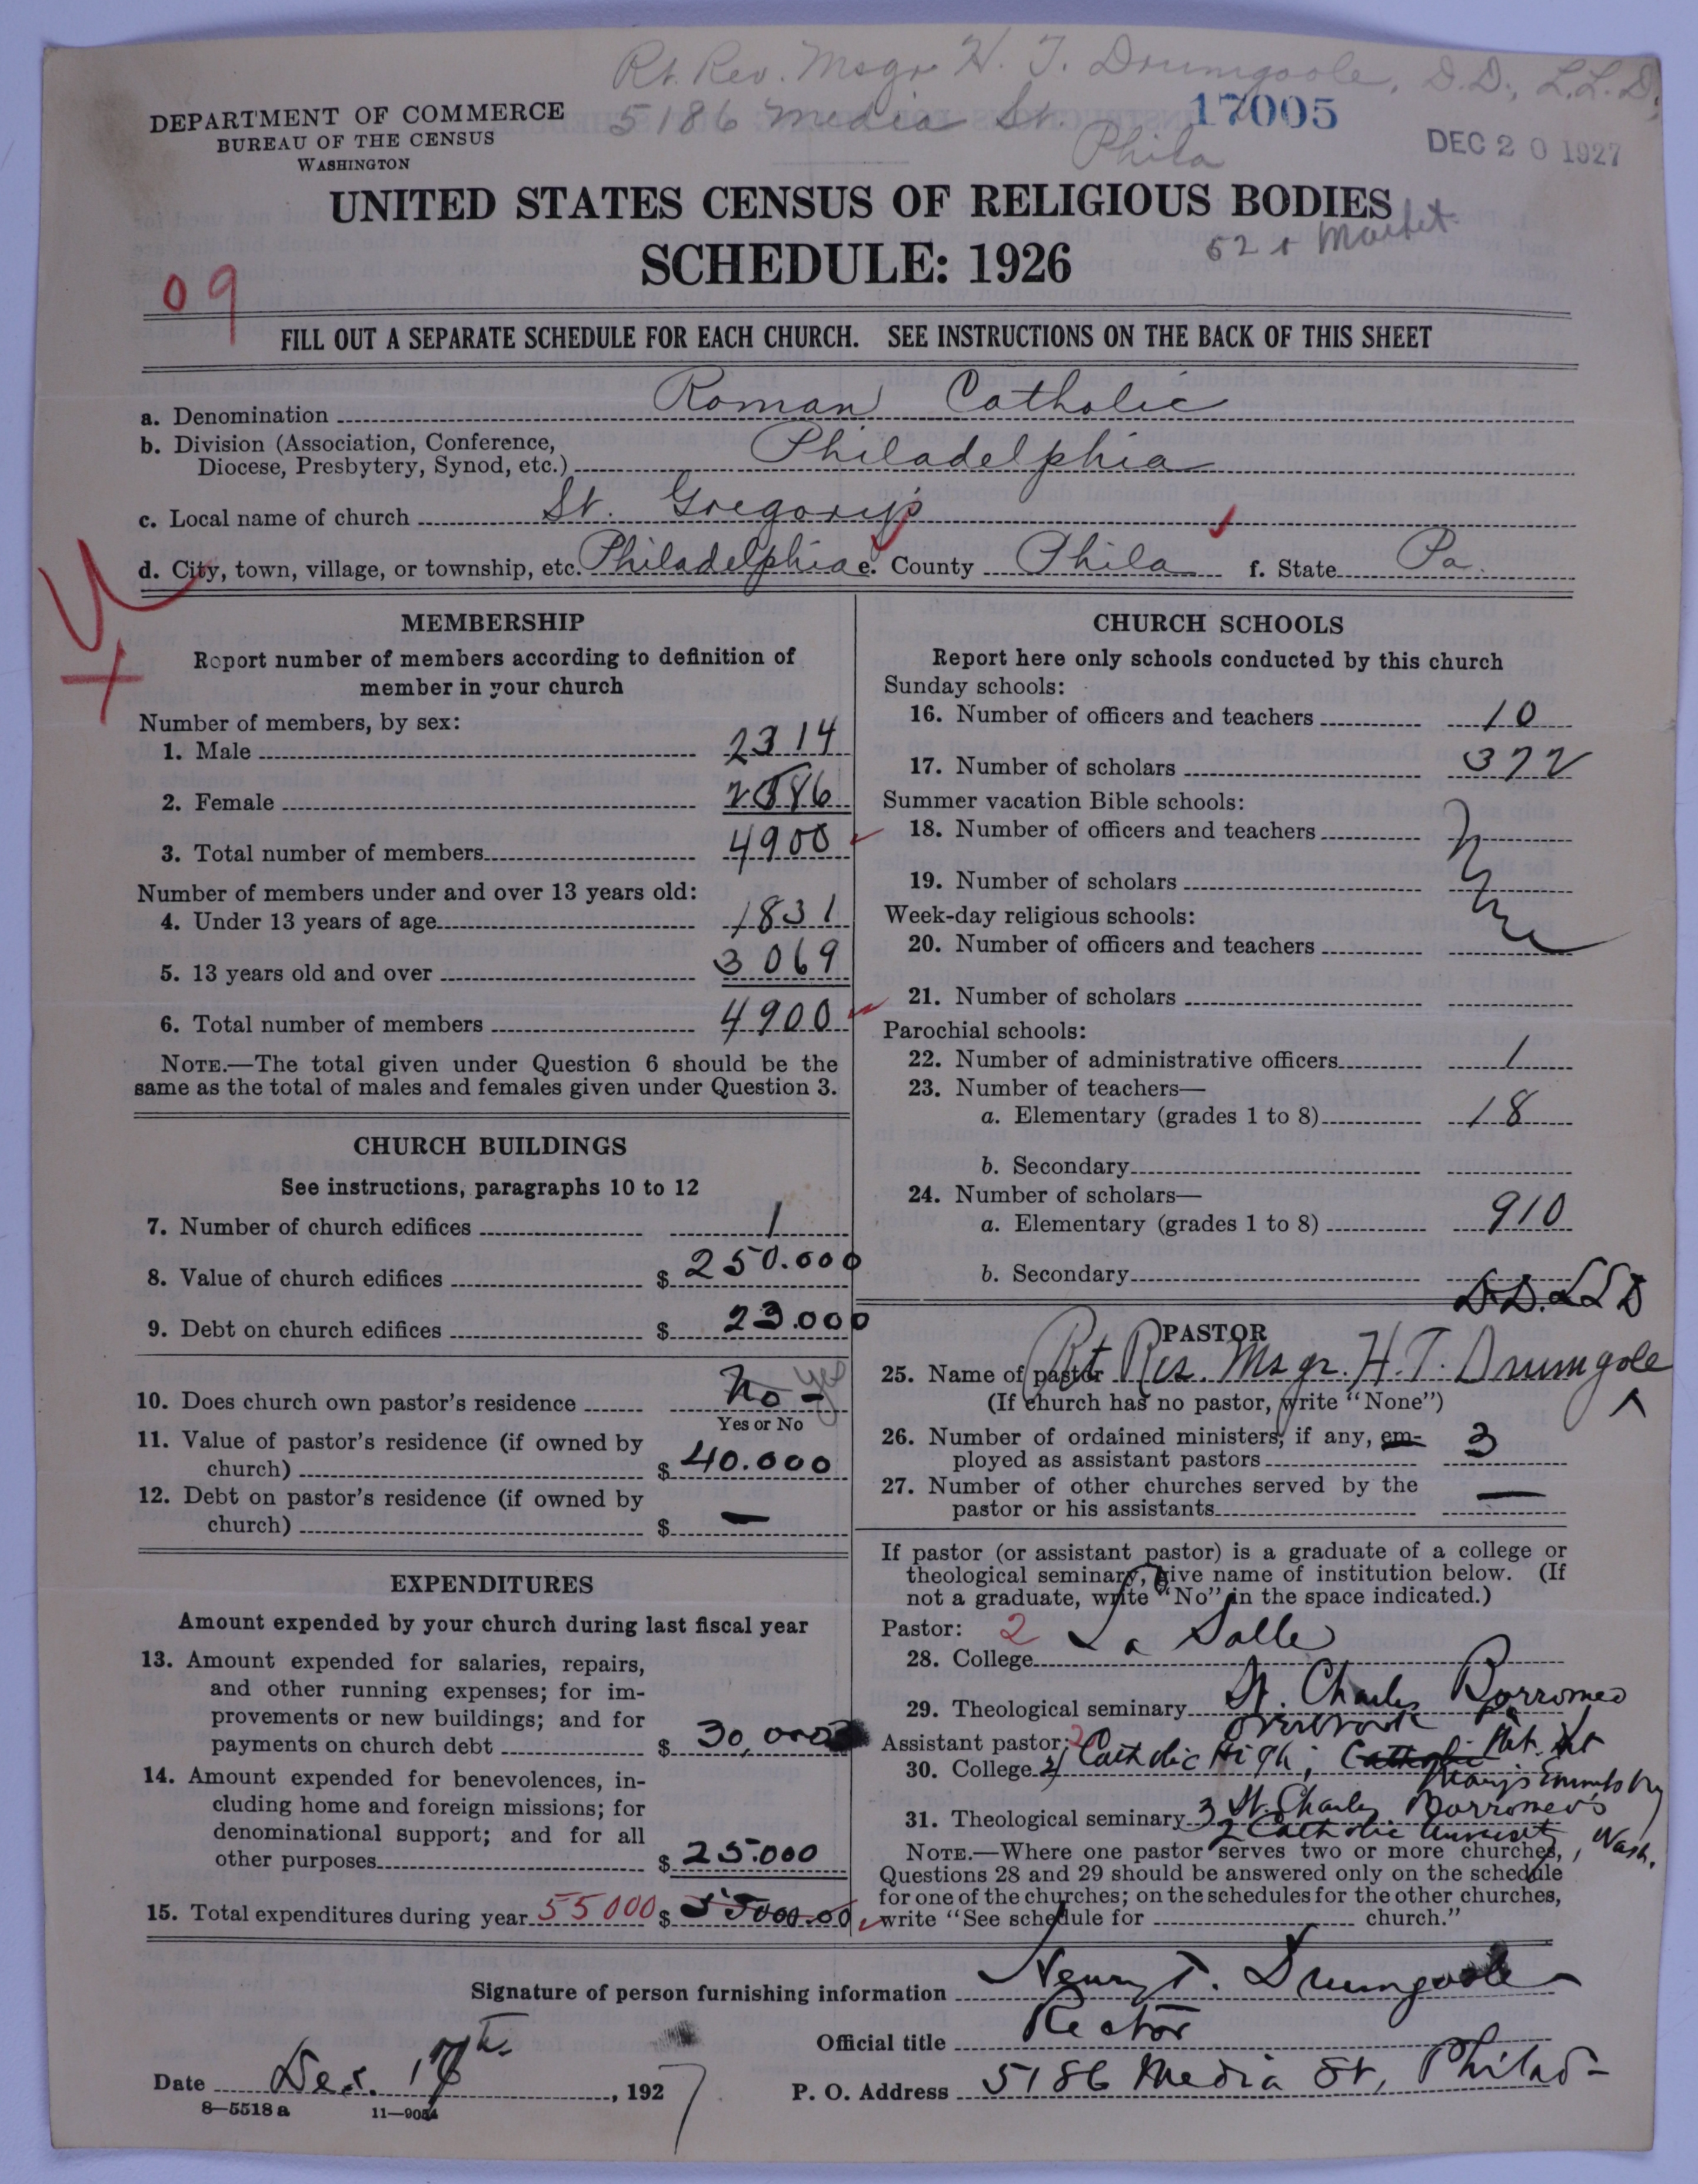 Rt. Rev. Msgr H. T. Drumgoole, D.D., L.L.D.
5186 Media St. 17005
Phila
DEC 20 1927
DEPARTMENT OF COMMERCE
BUREAU OF THE CENSUS
WASHINGTON
UNITED STATES CENSUS OF RELIGIOUS BODIES
SCHEDULE: 1926
52 & Market
09
FILL OUT A SEPARATE SCHEDULE FOR EACH CHURCH. SEE INSTRUCTIONS ON THE BACK OF THIS SHEET
a. Denomination Roman Catholic
b. Division (Association, Conference,
Diocese, Presbytery, Synod, etc.) Philadelphia
c. Local name of church St. Gregory's
d. City, town, village, or township, etc. Philadelphia e. County Phila f. State Pa.
MEMBERSHIP
Report number of members according to definition of
member in your church
Number of members, by sex:
1. Male 2314
2. Female 2586
3. Total number of members 4900
Number of members under and over 13 years old:
4. Under 13 years of age 1831
5. 13 years old and over 3069
6. Total number of members 4900
NOTE.—The total given under Question 6 should be the
same as the total of males and females given under Question 3.
CHURCH BUILDINGS
See instructions, paragraphs 10 to 12
7. Number of church edifices 1
8. Value of church edifices $ 250.000
9. Debt on church edifices $ 23.000
10. Does church own pastor's residence No - yes
Yes or No
11. Value of pastor's residence (if owned by
church) $ 40.000
12. Debt on pastor's residence (if owned by
church) $ —
EXPENDITURES
Amount expended by your church during last fiscal year
13. Amount expended for salaries, repairs,
and other running expenses; for im-
provements or new buildings; and for
payments on church debt $ 30,000
14. Amount expended for benevolences, in-
cluding home and foreign missions; for
denominational support; and for all
other purposes $ 25.000
15. Total expenditures during year 55000 $ 55000.00
CHURCH SCHOOLS
Report here only schools conducted by this church
Sunday schools:
16. Number of officers and teachers 10
17. Number of scholars 372
Summer vacation Bible schools:
18. Number of officers and teachers
19. Number of scholars
Week-day religious schools:
20. Number of officers and teachers
21. Number of scholars
Parochial schools:
22. Number of administrative officers 1
23. Number of teachers—
a. Elementary (grades 1 to 8) 18
b. Secondary
24. Number of scholars—
a. Elementary (grades 1 to 8) 910
b. Secondary
D.D. LLD
PASTOR
25. Name of pastor Rt Rev. Msgr. H. T. Drumgole
(If church has no pastor, write "None")
26. Number of ordained ministers, if any, em-
ployed as assistant pastors 3
27. Number of other churches served by the
pastor or his assistants —
If pastor (or assistant pastor) is a graduate of a college or
theological seminary, give name of institution below. (If
not a graduate, write "No" in the space indicated.)
Pastor: 2
28. College La Salle
29. Theological seminary St. Charles Borromeo
Overbrook Pa
Assistant pastor: 2
30. College 2 Catholic High, Catholic Mt. St
Mary's Emmitsburg
31. Theological seminary 3 St. Charles Borromeo's
2 Catholic University, Wash.
NOTE.—Where one pastor serves two or more churches,
Questions 28 and 29 should be answered only on the schedule
for one of the churches; on the schedules for the other churches,
write "See schedule for church."
Signature of person furnishing information Henry T. Drumgoole
Official title Rector
Date Dec. 17th, 1927
P. O. Address 5186 Media St, Philad-
8—5518a 11—9054